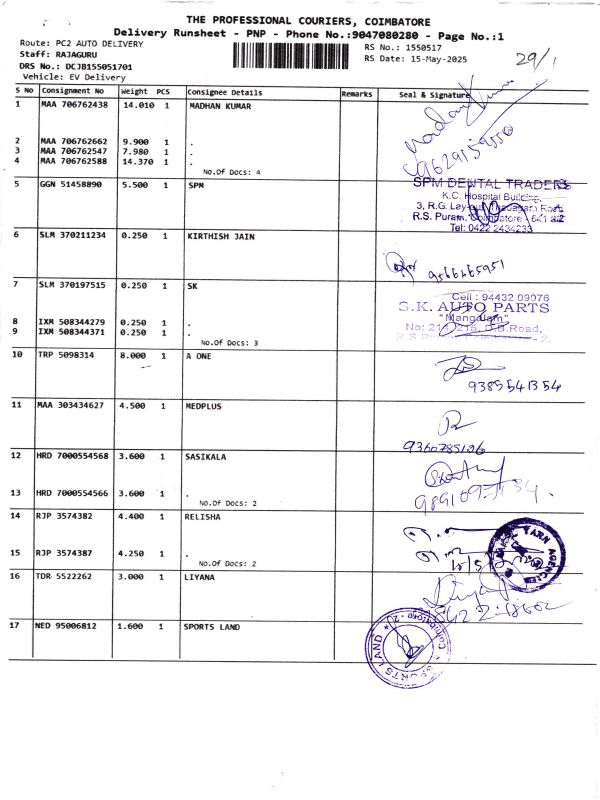 THE PROFESSIONAL COURIERS, COIMBATORE
Delivery Runsheet - PNP - Phone No.:9047080280 - Page No.:1
Route: PC2 AUTO DELIVERY RS No.: 1550517
Staff: RAJAGURU RS Date: 15-May-2025 29/1
DRS No.: DCJB155051701
Vehicle: EV Delivery
S No Consignment No Weight PCS Consignee Details Remarks Seal & Signature
1 MAA 706762438 14.010 1 MADHAN KUMAR
2 MAA 706762662 9.900 1 .
3 MAA 706762547 7.980 1 .
4 MAA 706762588 14.370 1 .
No.Of Docs: 4
5 GGN 51458890 5.500 1 SPM
SPM DENTAL TRADERS
K.C. Hospital Building,
3, R.G. Layout,
R.S. Puram, Coimbatore - 641
Tel: 0422 2434233
6 SLM 370211234 0.250 1 KIRTHISH JAIN
9566665951
7 SLM 370197515 0.250 1 SK
Cell : 94432 09076
S.K. AUTO PARTS
"Mangalam"
No: 214, 215, D.B.Road,
8 IXM 508344279 0.250 1 .
9 IXM 508344371 0.250 1 .
No.Of Docs: 3
10 TRP 5098314 8.000 1 A ONE
9385541354
11 MAA 303434627 4.500 1 MEDPLUS
9360785106
12 HRD 7000554568 3.600 1 SASIKALA
13 HRD 7000554566 3.600 1 .
No.Of Docs: 2
14 RJP 3574382 4.400 1 RELISHA
15 RJP 3574387 4.250 1 .
No.Of Docs: 2
YARN AGENCIES
16 TDR 5522262 3.000 1 LIYANA
17 NED 95006812 1.600 1 SPORTS LAND
SPORTS LAND
Coimbatore - 2